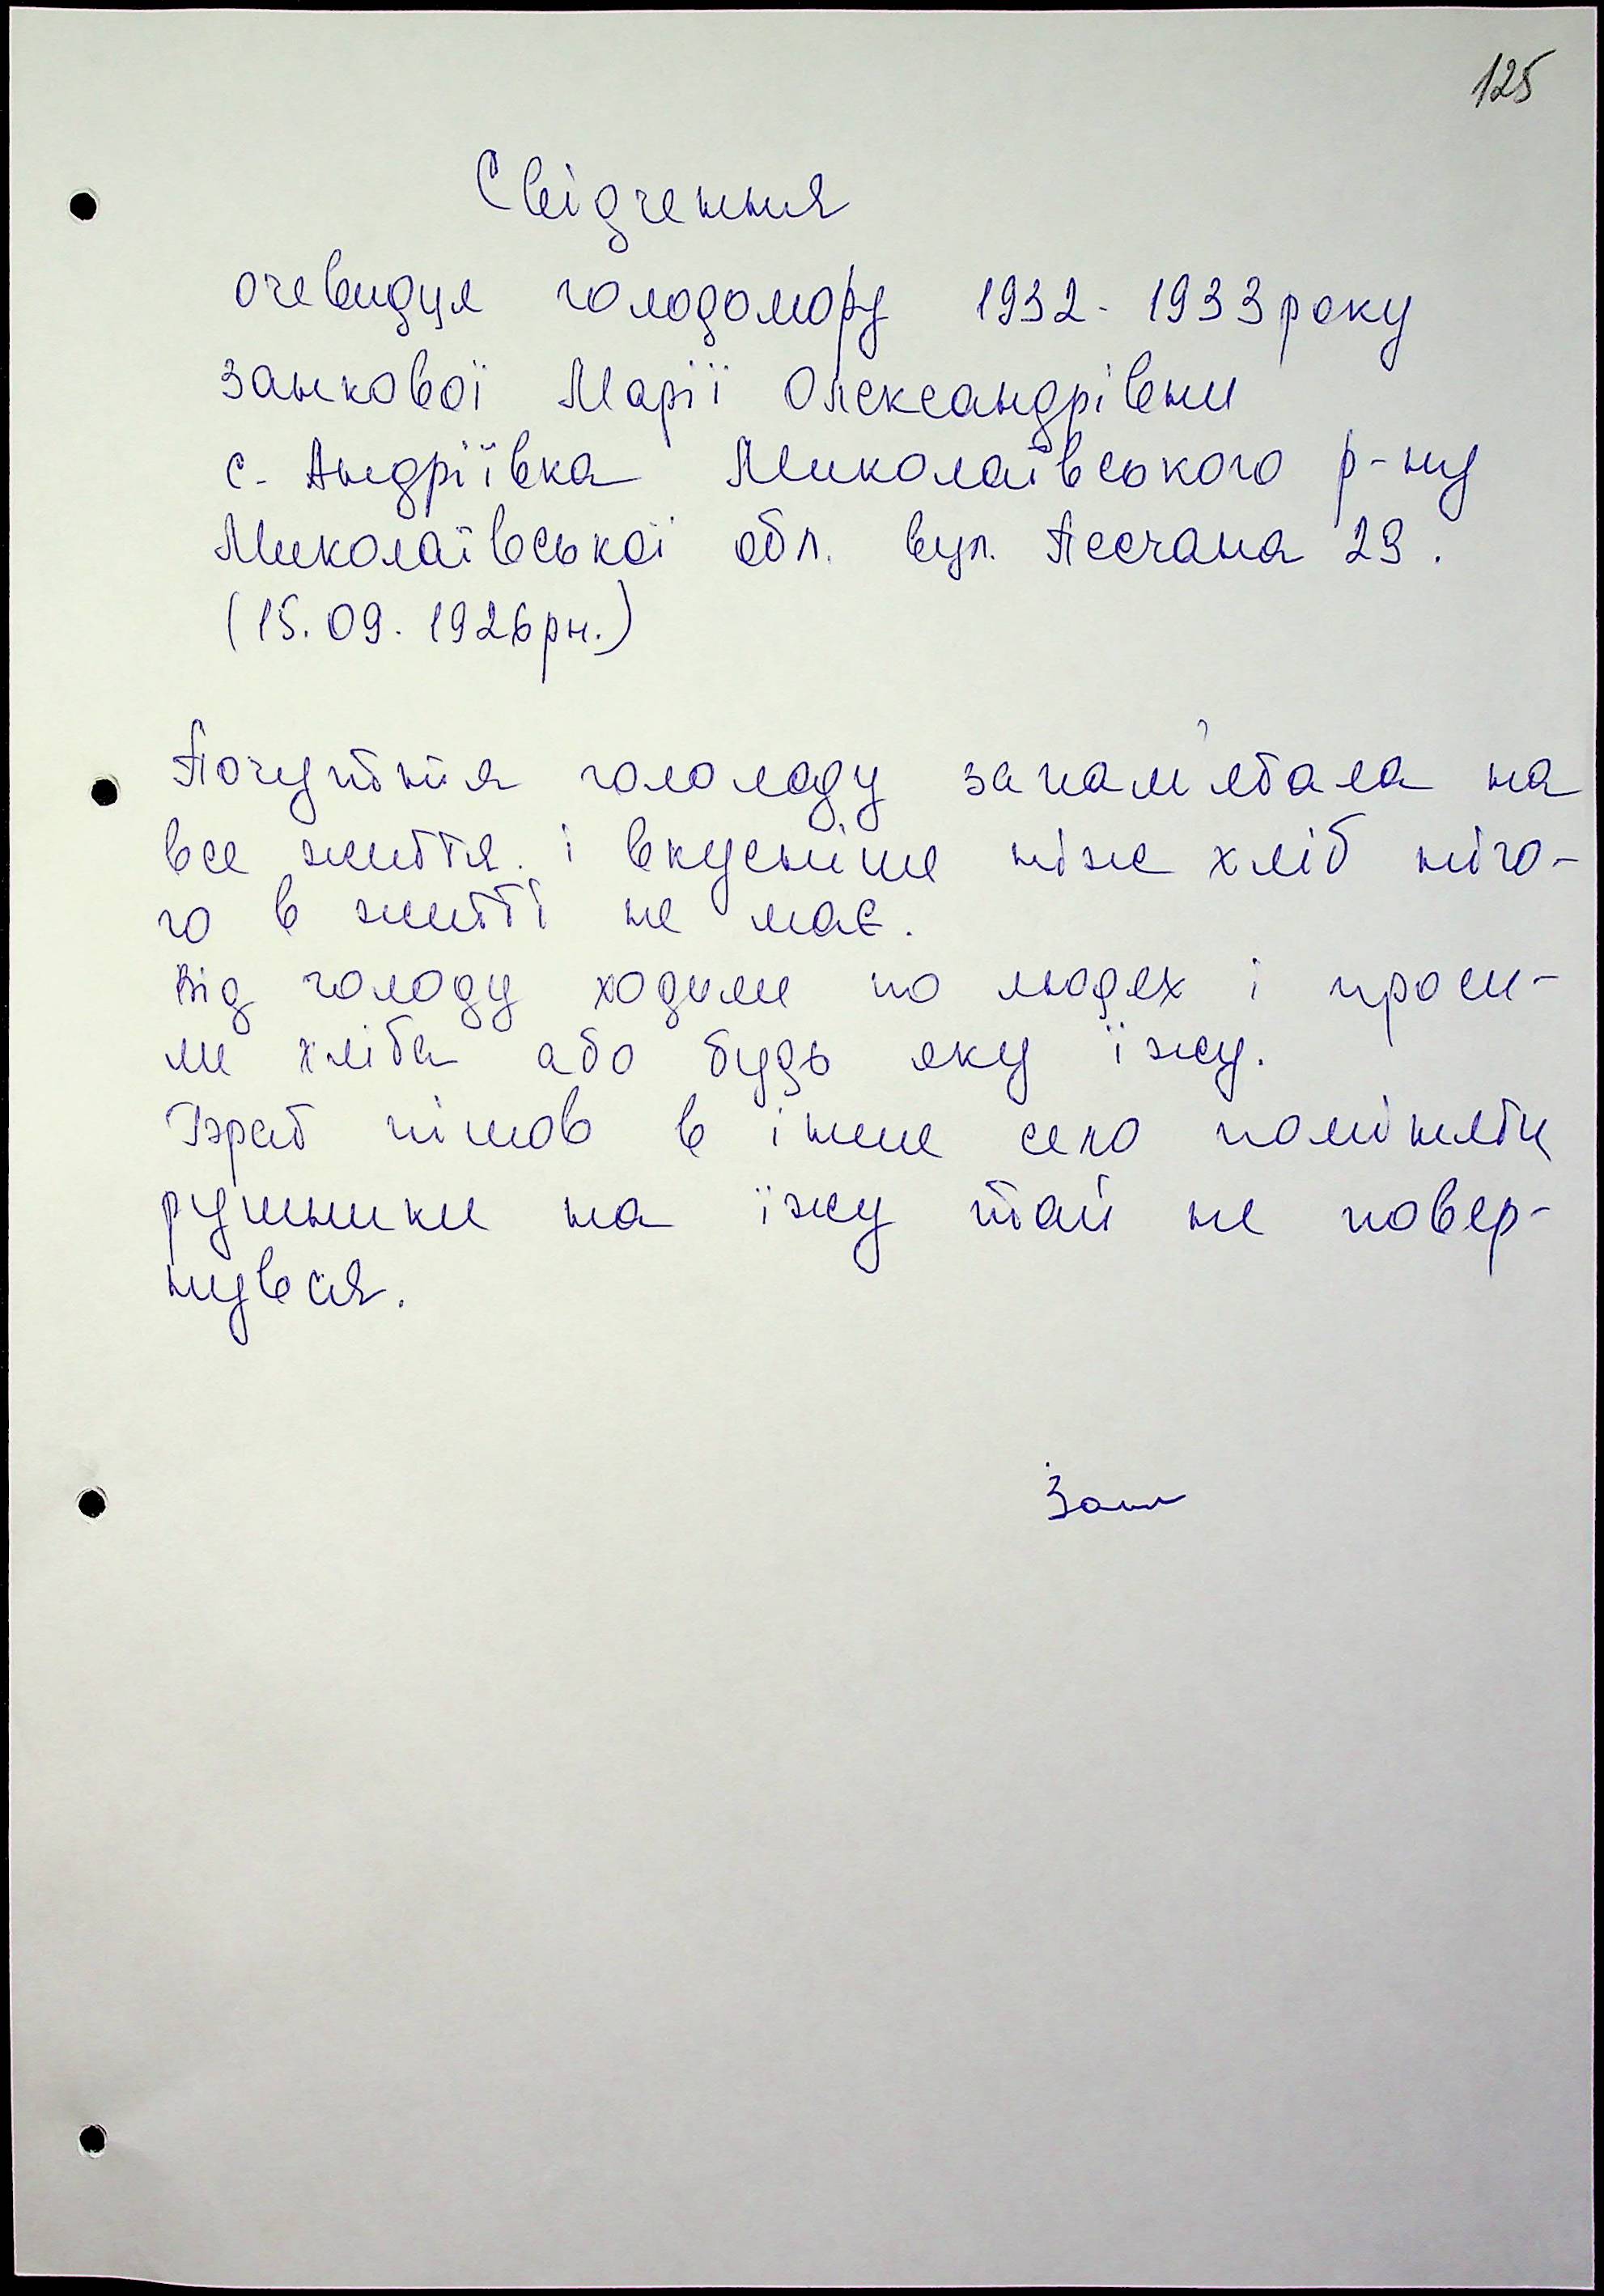 125
Свідчення
очевидця голодомору 1932-1933року
Занкової Марії Олександрівни
с. Андріївка Миколаївського р-ну
Миколаївської обл. вул. Песчана 29.
(15.09.1926рн.)
Почуття гололоду запам'ятала на
все життя і вкусніше ніж хліб нічо-
го в житті не має.
Від голоду ходили по людях і проси-
ли хліба або будь яку їжу.
Брат пішов в інше село поміняти
рушники на їжу тай не повер-
нувся.